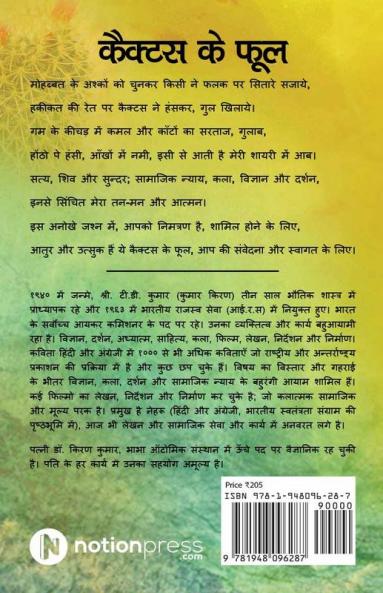 कैक्टस के फूल
मोहब्बत के अश्कों को चुनकर किसी ने फलक पर सितारे सजाये,
हकीकत की रेत पर कैक्टस ने हंसकर, गुल खिलाये।
गम के कीचड़ में कमल और काँटों का सरताज, गुलाब,
होंठो पे हंसी, आँखों में नमी, इसी से आती है मेरी शायरी में आब।
सत्य, शिव और सुन्दर; सामाजिक न्याय, कला, विज्ञान और दर्शन,
इनसे सिंचित मेरा तन-मन और आत्मन।
इस अनोखे जश्न में, आपको निमत्रण है, शामिल होने के लिए,
आतुर और उत्सुक हैं ये कैक्टस के फूल, आप की संवेदना और स्वागत के लिए।
१९४० में जन्मे, श्री. टी.डी. कुमार (कुमार किरण) तीन साल भौतिक शास्त्र में
प्राध्यापक रहे और १९६३ में भारतीय राजस्व सेवा (आई.र.स) में नियुक्त हुए। भारत
के सर्वोच्च आयकर कमिशनर के पद पर रहे। उनका व्यक्तित्व और कार्य बहुआयामी
रहा है। विज्ञान, दर्शन, अध्यात्म, साहित्य, कला, फिल्म, लेखन, निर्देशन और निर्माण।
कविता हिंदी और अंग्रेजी में १००० से भी अधिक कविताएँ जो राष्ट्रीय और अन्तर्राष्ट्रय
प्रकाशन की प्रक्रिया में है और कुछ छप चुके हैं। विषय का विस्तार और गहराई
के भीतर विज्ञान, कला, दर्शन और सामाजिक न्याय के बहुरंगी आयाम शामिल हैं।
कई फिल्मो का लेखन, निर्देशन और निर्माण कर चुके है; जो कलात्मक सामाजिक
और मूल्य परक है। प्रमुख है नेहरू (हिंदी और अंग्रेजी, भारतीय स्वतंत्रता संग्राम की
पृष्ठभूमि में), आज भी लेखन और सामाजिक सेवा और कार्य में अनवरत लगे है।
पत्नी डॉ. किरण कुमार, भाभा ऑटोमिक संस्थान में ऊँचे पद पर वैज्ञानिक रह चुकी
है। पति के हर कार्य में उनका सहयोग अमूल्य है।
Price ₹205
ISBN 978-1-948096-28-7
90000
9 781948 096287
N notionpress
.com